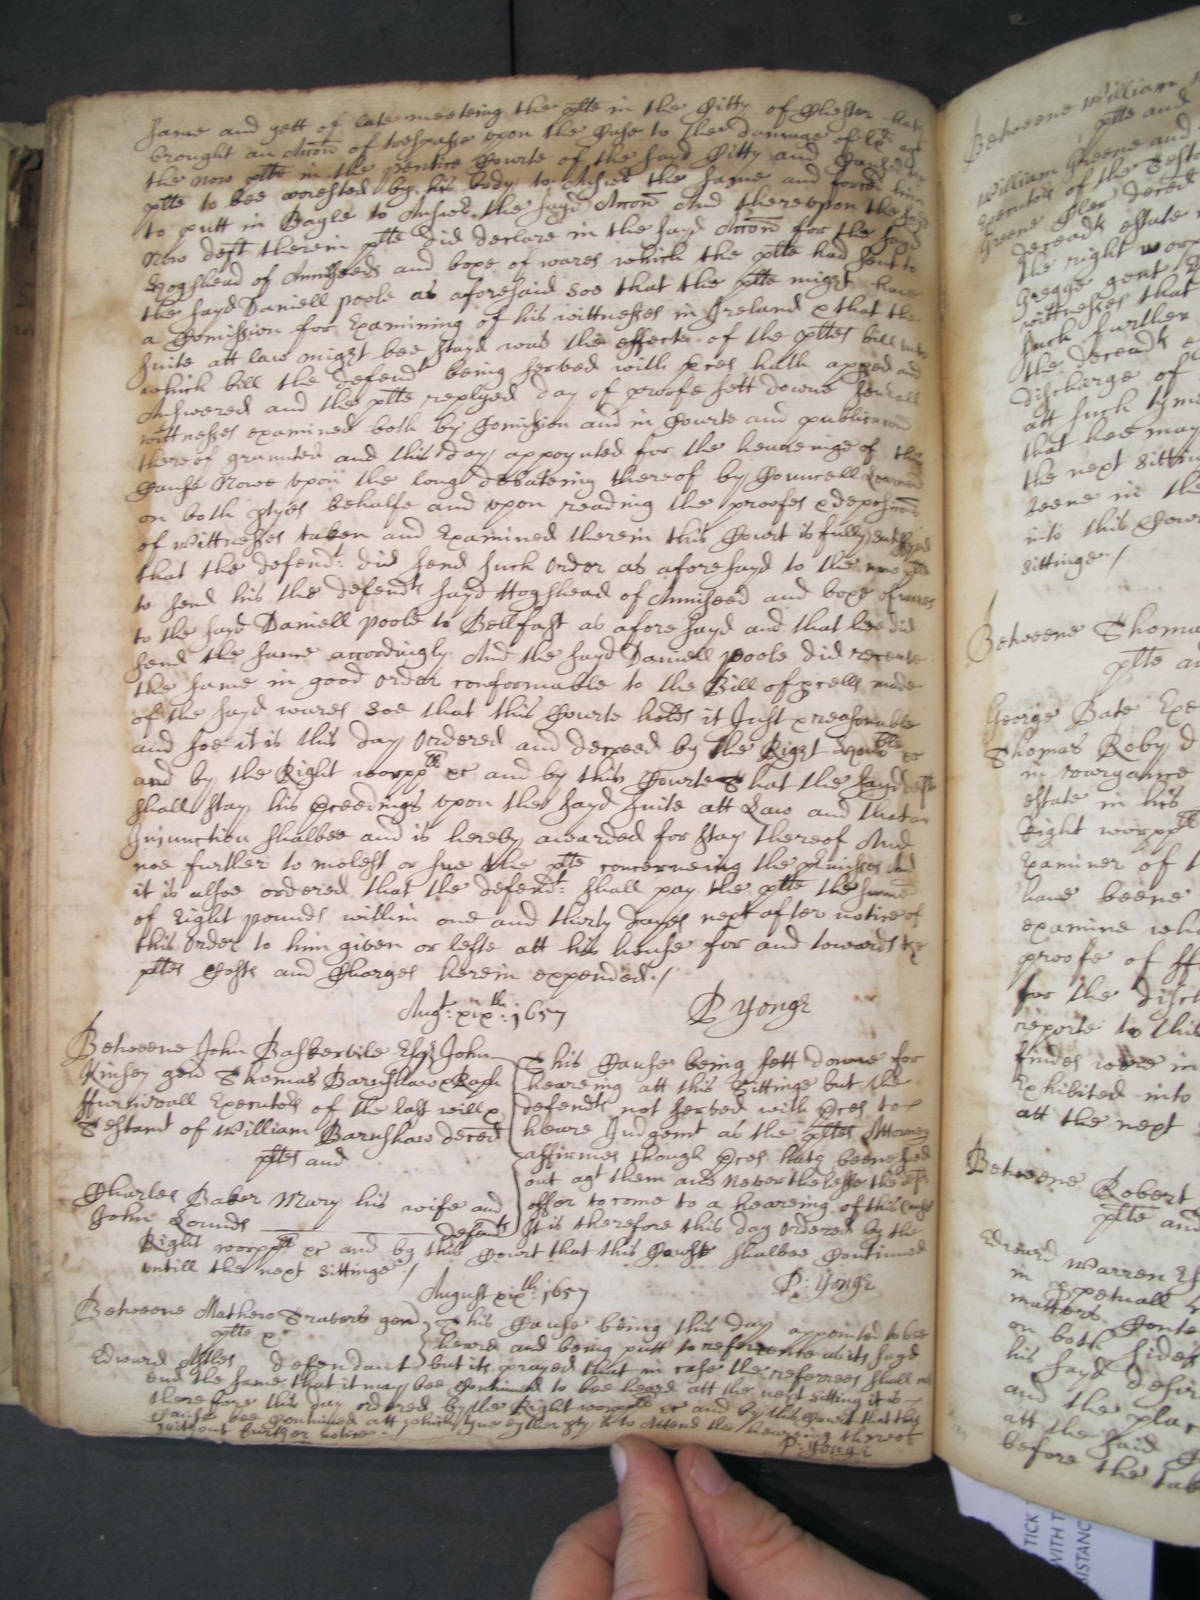 same and gett of late meeteing the plte in the Citty of Chester hath
brought an Accon of trespasse upon the Case to the damage of
the now plte in the pentice Courte of the sayd Citty and Caused
plte to bee arrested by his body to Answer the same and forced him
to putt in Bayle to Answer the sayd Accon And thereupon the sayd
Now deft therein plte did declare in the sayd Accon for the sayd
Hogshead of Anniseeds and boxe of wares which the plte had sent to
the sayd Daniell poole as aforesaid Soe that the plte might have
a Comission for Examining of his wittnesses in Ireland & that the
suite att law might bee stayd was the effecte of the pltes bill unto
which bill the defendt being served with pces hath appred and
Answered and the plte replyed day of proofe sett downe severall
wittnesses examined both by Comission and in Courte and publicacon
thereof graunted and this day appoynted for the heareinge of this
Cause Nowe upon the long debateing thereof by Councell Learned
on both ptyes behalfe and upon reading the proofes & deposicons
of wittnesses taken and Examined therein this Court is fully satisfyed
that the defendt: did send such Order as aforesayd to the now plte
to send his the defendts sayd Hogshead of Anniseed and boxe of wares
to the sayd Daniell poole to Bellfast as aforesayd and that hee did
send the same accordingly And the sayd Daniell poole did receave
the same in good order conformable to the Bill of pcells made
of the sayd wares Soe that this Courte holds it Just & reasonable
and soe it is this day Ordered and decreed by the Right honoble &c
and by the Right worppll &c and by this Courte that the sayd deft
shall stay his pceedings upon the sayd suite att Law and that an
Injunction shalbee and is hereby awarded for stay thereof And
noe further to molest or sue the plte concerneing the pmisses And
it is alsoe ordered that the defendt: shall pay the plte the summe
of Eight pounds within one and thirty dayes next after notice of
this Order to him given or lefte att his house for and towards the
pltes Costs and Charges herein expended./
Augt: xixth: 1657 P Yonge
Betweene John Baskervile Esqr John
Kinsey gen Thomas Barnshaw & Raph
ffurnivall Executors of the last will &
Testamt of William Barnshaw deced
pltes and
Charles Baker Mary his wife and
John Lounds defendts
This Cause being sett downe for
heareing att this Sittinge but the
defendts not served with pces to
heare Judgemt as the pltes Attorney
affirmes though pces hath beene sued
out agt them and Neverthelesse the
offer to come to a heareing of this Cause
It is therefore this day Ordered by the
Right worppll &c and by this Court that this Cause shalbee Continued
untill the next Sittinge./ P: Yonge
August xixth: 1657
Betweene Mathew Travers gen
plte &
Edward Alles defendant
This Cause being this day appointed to bee
heard and being putt to reference as its sayd
but its prayed that in case the referrees shall not
end the same that it may bee Continued to bee heard att the next sitting it is
therefore this day ordered by the Right worppll &c and by this Court that this
Cause bee Continued att which tyme eyther pty is to Attend the heareing thereof
without further notice./ P: Yonge
Betweene William
plte and
William Greene and
Executors of the
Greene deced
deceads estate
the right worp
Gregge gent
wittnesses that
such further
the deceads
discharge of
att such tyme
that hee may
the next Sittin
Keene in the
into this Cour
Sittinge./
Betweene Thoma
plte an
George Bate Exe
Thomas Roby d
in
estate in his
Right worppll
Examiner of t
have beene
examine who
proofe of
for the disch
reporte to this
findes were in
Exhibited into
att the next
Betweene Robert
plte and
Edward Warren Es
in ppetuall
matters Conte
on both sides
his sayd desir
and the plac
att the said
before the
TICK
WITH T
SISTANC